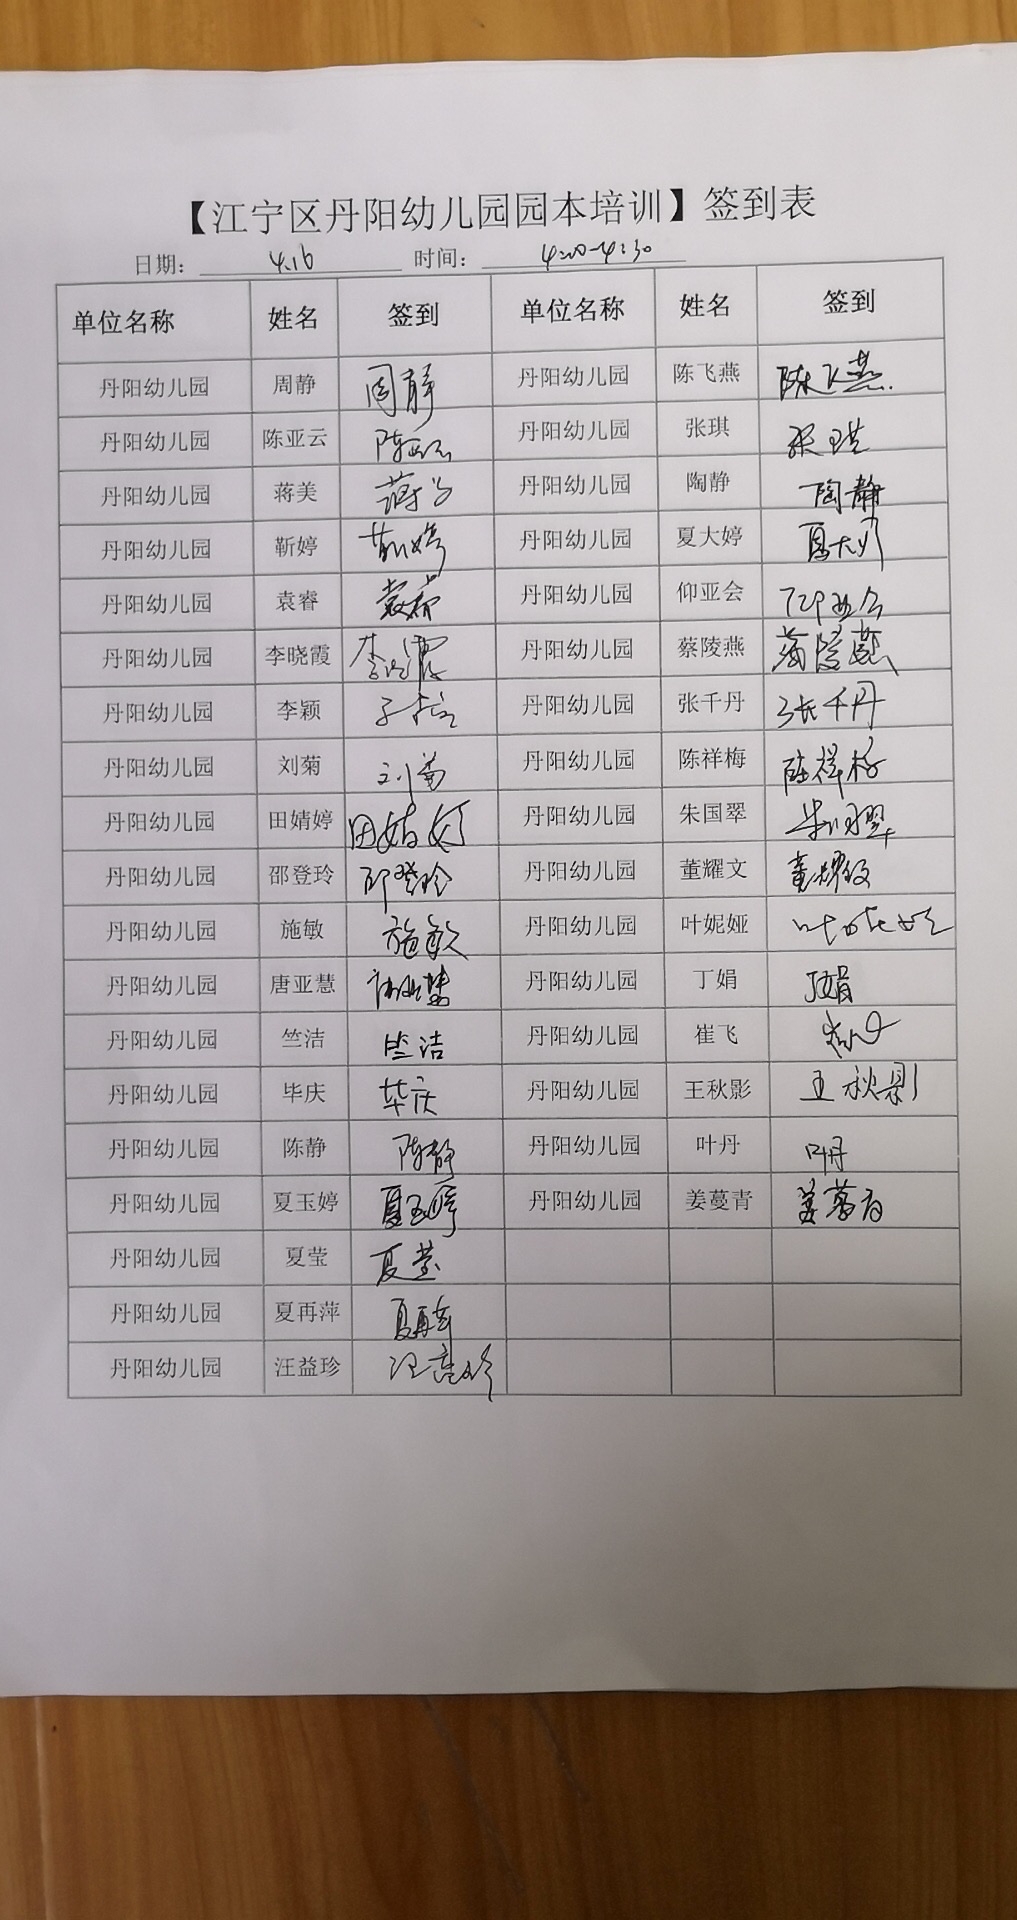 【江宁区丹阳幼儿园园本培训】签到表
日期： 4.16 时间： 4:20-4:30
单位名称 姓名 签到 单位名称 姓名 签到
丹阳幼儿园 周静 周静 丹阳幼儿园 陈飞燕 陈飞燕
丹阳幼儿园 陈亚云 陈亚云 丹阳幼儿园 张琪 张琪
丹阳幼儿园 蒋美 蒋美 丹阳幼儿园 陶静 陶静
丹阳幼儿园 靳婷 靳婷 丹阳幼儿园 夏大婷 夏大婷
丹阳幼儿园 袁睿 袁睿 丹阳幼儿园 仰亚会 仰亚会
丹阳幼儿园 李晓霞 李晓霞 丹阳幼儿园 蔡陵燕 蔡陵燕
丹阳幼儿园 李颖 李颖 丹阳幼儿园 张千丹 张千丹
丹阳幼儿园 刘菊 刘菊 丹阳幼儿园 陈祥梅 陈祥梅
丹阳幼儿园 田婧婷 田婧婷 丹阳幼儿园 朱国翠 朱国翠
丹阳幼儿园 邵登玲 邵登玲 丹阳幼儿园 董耀文 董耀文
丹阳幼儿园 施敏 施敏 丹阳幼儿园 叶妮娅 叶妮娅
丹阳幼儿园 唐亚慧 唐亚慧 丹阳幼儿园 丁娟 丁娟
丹阳幼儿园 竺洁 竺洁 丹阳幼儿园 崔飞 崔飞
丹阳幼儿园 毕庆 毕庆 丹阳幼儿园 王秋影 王秋影
丹阳幼儿园 陈静 陈静 丹阳幼儿园 叶丹 叶丹
丹阳幼儿园 夏玉婷 夏玉婷 丹阳幼儿园 姜蔓青 姜蔓青
丹阳幼儿园 夏莹 夏莹
丹阳幼儿园 夏再萍 夏再萍
丹阳幼儿园 汪益珍 汪益珍